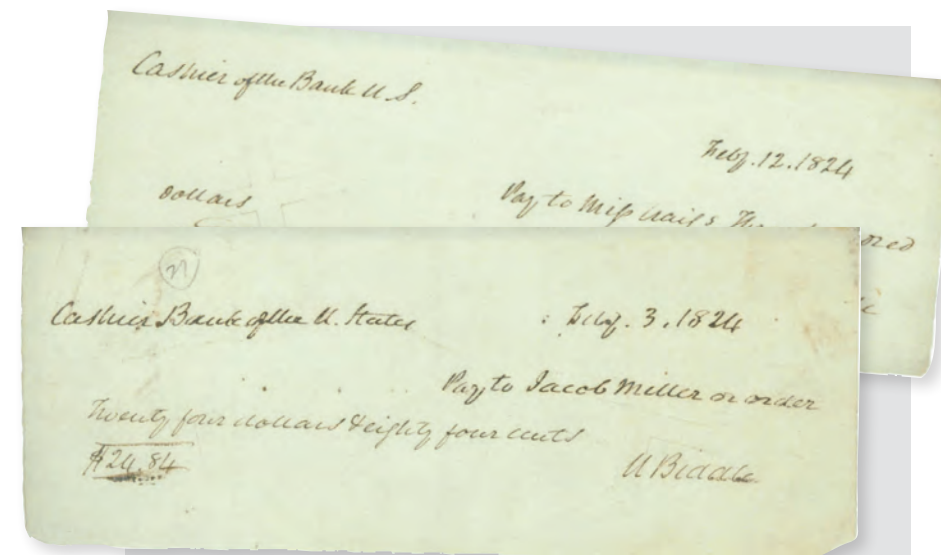 Cashier of the Bank U.S.
Feby. 12. 1824
Pay to Miss
dollars
Cashier Bank of the U. States
Feby. 3. 1824
Pay to Jacob Miller or order
Twenty four dollars & eighty four cents
$24.84
N Biddle